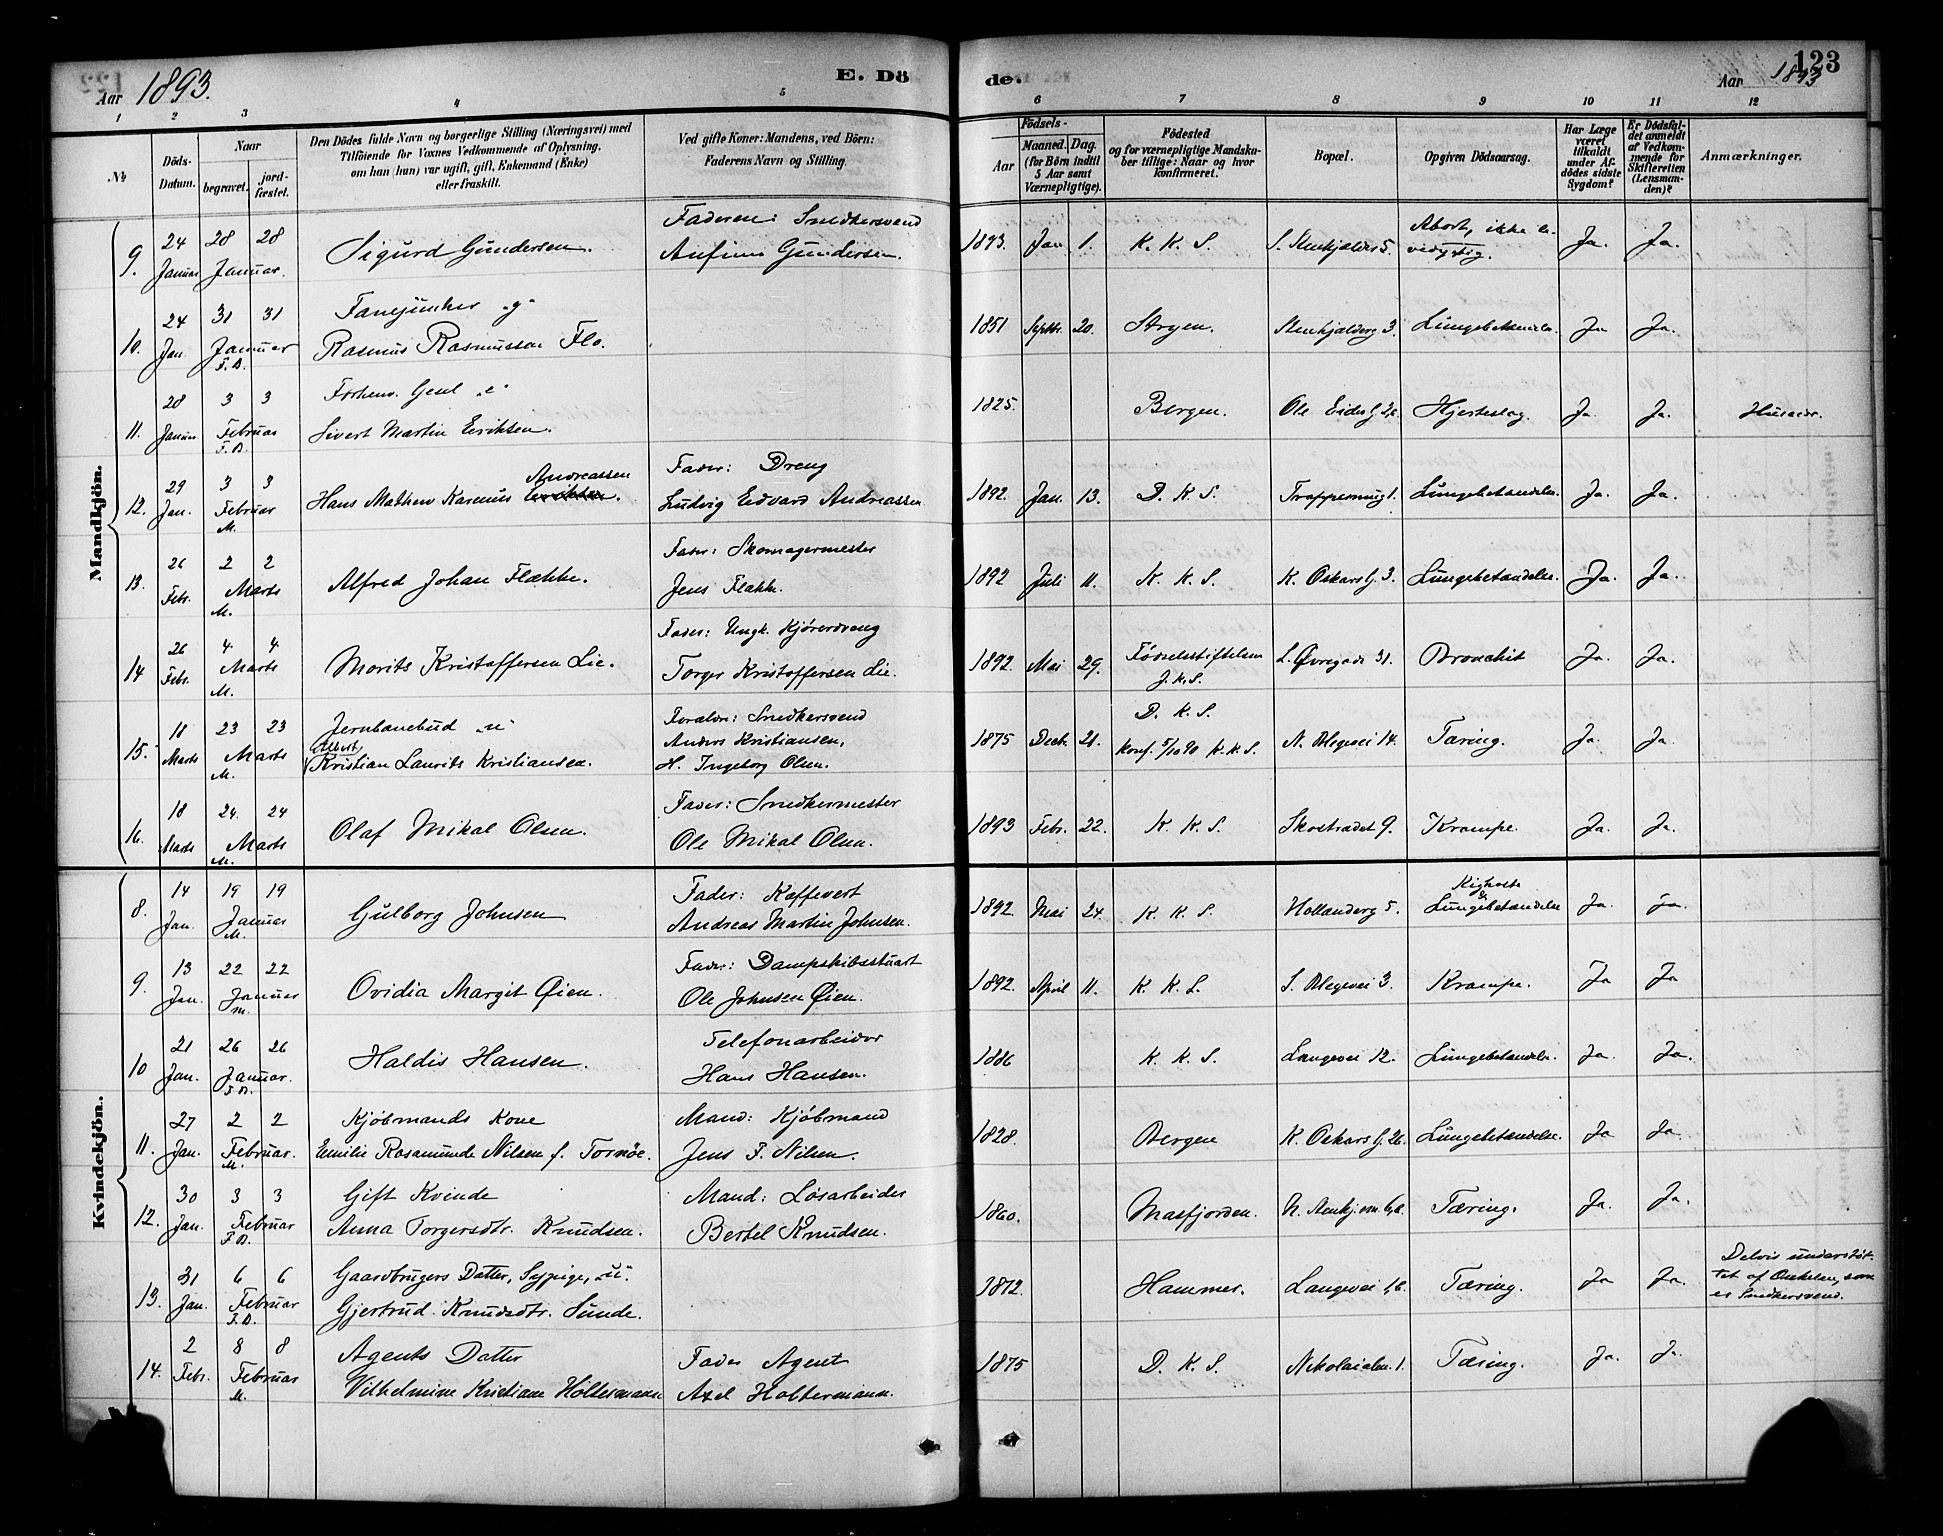 Aar 1893.
E. Dö
de.
Aar 1893
123
1 2 3 4 5 6 7 8 9 10 11 12
No
Döds-Datum.
Naar
begravet.
jord-fæstet.
Den Dödes fulde Navn og borgerlige Stilling (Næringsvei) med
Tilföiende for Voxnes Vedkommende af Oplysning,
om han (hun) var ugift, gift, Enkemand (Enke)
eller fraskilt.
Ved gifte Koner: Mandens, ved Börn:
Faderens Navn og Stilling.
Födsels-
Aar
Maaned. Dag.
(for Börn indtil
5 Aar samt
Værnepligtige).
Födested
og for værnepligtige Mandska-
ber tillige: Naar og hvor
konfirmeret.
Bopæl.
Opgiven Dödsaarsag.
Har Læge
været
tilkaldt
under Af-
dödes sidste
Sygdom?
Er Dödsfal-
det anmeldt
af Vedkom-
mende for
Skifteretten
(Lensman-
den)?
Anmærkninger.
Mandkjön.
9. 24 Januar 28 28 Januar. Sigurd Gundersen. Faderen: Snedkersvend Anfinn Gundersen. 1893. Jan 1. K. K. S. S. Stenkjælder 5. Abort, ikke Ja. Ja.
10. 24 Jan. 31 31 Januar F.D. Fanejunker "g" Rasmus Rasmussen Flo. 1851 Septbr. 20. Stryen. Stenkjælderg 3. Lungebetændelse. Ja Ja.
11. 28 Januar 3 3 Februar F.D. Forhenv. Gesel "e" Sivert Martin Eriksen. 1825. Bergen. Ole Eides G. 2a. Hjerteslag. Ja. Ja. Huseier.
12. 29 Jan. 3 3 Februar M. Hans Mathew Karenus Eriksen. Andreassen Fader: Dreng Ludvig Edvard Andreassen 1892. Jan. 13. D. K. S. 1. Lungebetændelse. Ja. Ja.
13. 26 Febr. 2 2 Marts M. Alfred Johan Flække. Fader: Skomagermester Jens Flække. 1892 Juli 11. K. K. S. K. Oskars G. 3. Lungebetændelse. Ja. Ja.
14 26 Febr. 4. 4. Marts M. Morits Kristoffersen Lie. Fader: Ungk. Kjøredreng Torger Kristoffersen Lie. 1892. Mai 29. Fødselsstiftelsen J.K.S. L. Øvregade 31. Bronchit Ja. Ja.
15. 18 Marts 23 23 Marts M. Jernbanebud "u" Albert Kristian Laurits Kristiansen. Forældre: Snedkersvend Anders Kristiansen, H. Ingeborg Olsen. 1875 Decb. 21. D. K. S. Konf. 5/10 90 K.K.S. N. Blegevei 14. Tæring. Ja. Ja.
16. 18 Marts 24. 24 Marts M. Olaf Mikal Olsen. Fader: Snedkermester Ole Mikal Olsen. 1893 Febr. 22. K. K. S. Skostrædet 9. Krampe. Ja. Ja.
Kvindekjön.
8. 14 Jan. 19 19 Januar M. Gulborg Johnsen Fader: Kaffevert Andreas Martin Johnsen. 1892. Mai 24. K. K. S. Hollanderg 5. Kighoste & Lungebetændelse Ja. Ja.
9. 13 Jan. 22 22 Januar M. Ovidia Margit Øien. Fader: Dampskibsstuart Ole Johnsen Øien. 1892. April 11. K. K. S. S. Blegevei 3. Krampe. Ja Ja
10 21 Jan. 26 26 Januar. F.D. Haldis Hansen. Telefonarbeider Hans Hansen. 1886 K. K. S. Langevei 12. Lungebetændelse. Ja. Ja.
11. 27 Jan. 2 2 Februar. M. Kjøbmands Kone Emilie Rosamunde Nilsen f. Tornöe. Mand: Kjøbmand Jens F. Nilsen. 1828. Bergen K. Oskars G. 26. Lungebetændelse. Ja Ja.
12. 30 Jan. 3 3 Februar F.D. Gift Kvinde Anna Torgersdtr. Knudsen. Mand: Løsarbeider Bertel Knudsen. 1860. Masfjorden. Tæring. Ja. Ja.
13. 31 Jan. 6 6 Februar F.D. Gaardbrugers Datter, Sypige, "u". Gjertrud Knudsdtr. Sunde. 1872. Hammer. Langevei 1,b. Tæring. Ja Ja. Delvis understøt-
tet af Onkelen, som
er Snedkersvend.
14. 2 Febr. 8 8 Februar M. Agents Datter Vilhelmine Kristiane Holtermann Fader Agent Axel Holtermann. 1875 D. K. S. Nikolaialm. 1. Tæring. Ja. Ja.